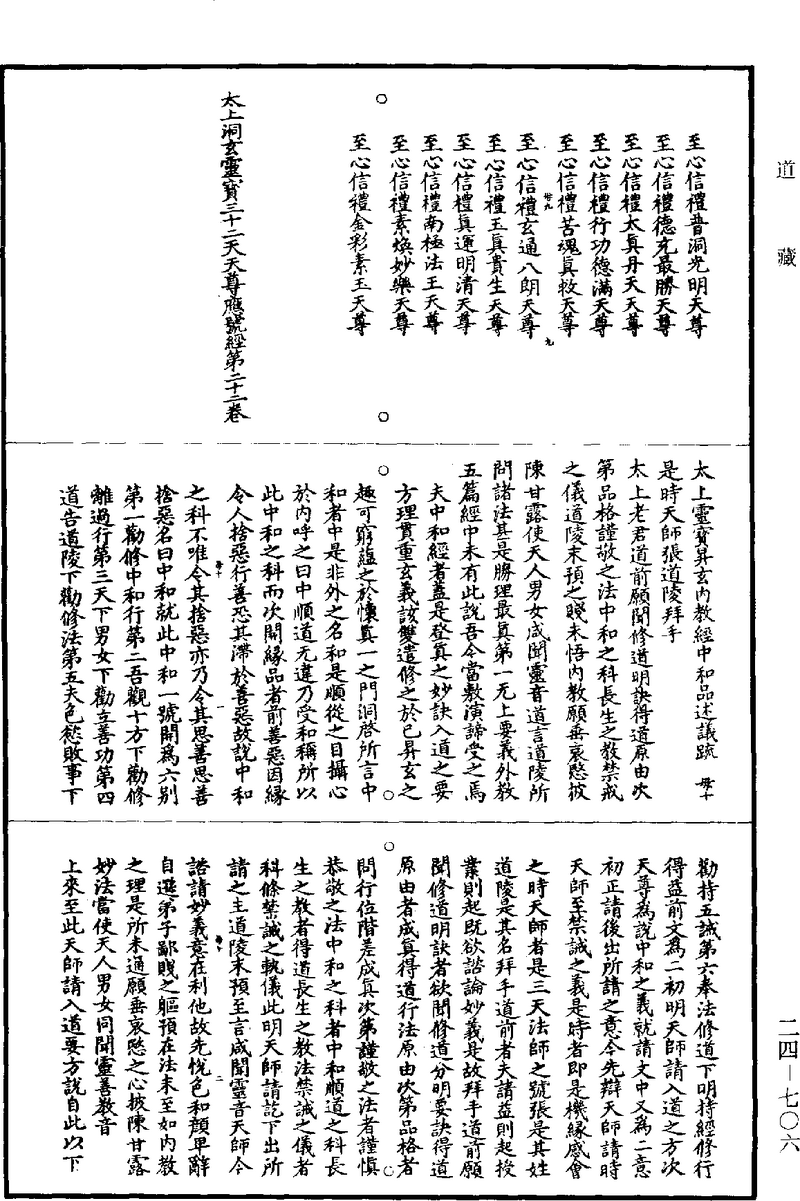 道藏
至心信禮普洞光明天尊
至心信禮德充最勝天尊
至心信禮太真丹天天尊
至心信禮行功德滿天尊
至心信禮苦魂真救天尊
至心信禮玄通八朗天尊
至心信禮玉真貴生天尊
至心信禮真運明清天尊
至心信禮南極法王天尊
至心信禮素煥妙樂天尊
至心信禮金彩素玉天尊
太上洞玄靈寶三十二天天尊應號經第二十二卷
太上靈寶昇玄內教經中和品述議疏
是時天師張道陵拜手
太上老君道前願聞修道明訣得道原由次
第品格謹敬之法中和之科長生之教禁戒
之儀道陵末預之賤未悟內教願垂哀愍披
陳甘露使天人男女咸聞靈音道言道陵所
問諸法甚是勝理最真第一无上要義外教
五篇經中未有此說吾今當敷演諦受之焉
夫中和經者蓋是登真之妙訣入道之要
方理貫重玄義該雙遣修之於已昇玄之
趣可窮蘊之於懷真一之門洞啓所言中
和者中是非外之名和是順從之目攝心
於內呼之曰中順道无違乃受和稱所以
此中和之科而次開緣品者前善惡因緣
令人捨惡行善恐其滯於善惡故說中和
之科不唯令其捨惡亦乃令其思善思善
捨惡名曰中和就此中和一號開為六別
第一勸修中和行第二吾觀十方下勸修
離過行第三天下男女下勸立善功第四
道告道陵下勸修法第五夫色慾敗事下
勸持五誡第六奉法修道下明持經修行
得益前文為二初明天師請入道之方次
天尊為說中和之義就請文中又為二意
初正請後出所請之意今先辯天師請時
天師至禁誡之義是時者即是機緣感會
之時天師者是三天法師之號張是其姓
道陵是其名拜手道前者夫請益則起投
業則起既欲諮論妙義是故拜手道前願
聞修道明訣者欲聞修道分明要訣得道
原由者成真得道行法原由次第品格者
問行位階差成真次第謹敬之法者謹慎
恭敬之法中和之科者中和順道之科長
生之教者得道長生之教法禁誡之儀者
科條禁誡之軌儀此明天師請訖下出所
請之主道陵末預至言咸聞靈音天師今
諮請妙義意在利他故先恱色和顏卑辭
自遜弟子鄙賤之軀預在法末至如內教
之理是所未通願垂哀愍之心披陳甘露
妙法當使天人男女同聞靈善教音
上來至此天師請入道要方說自此以下
二四－七〇六